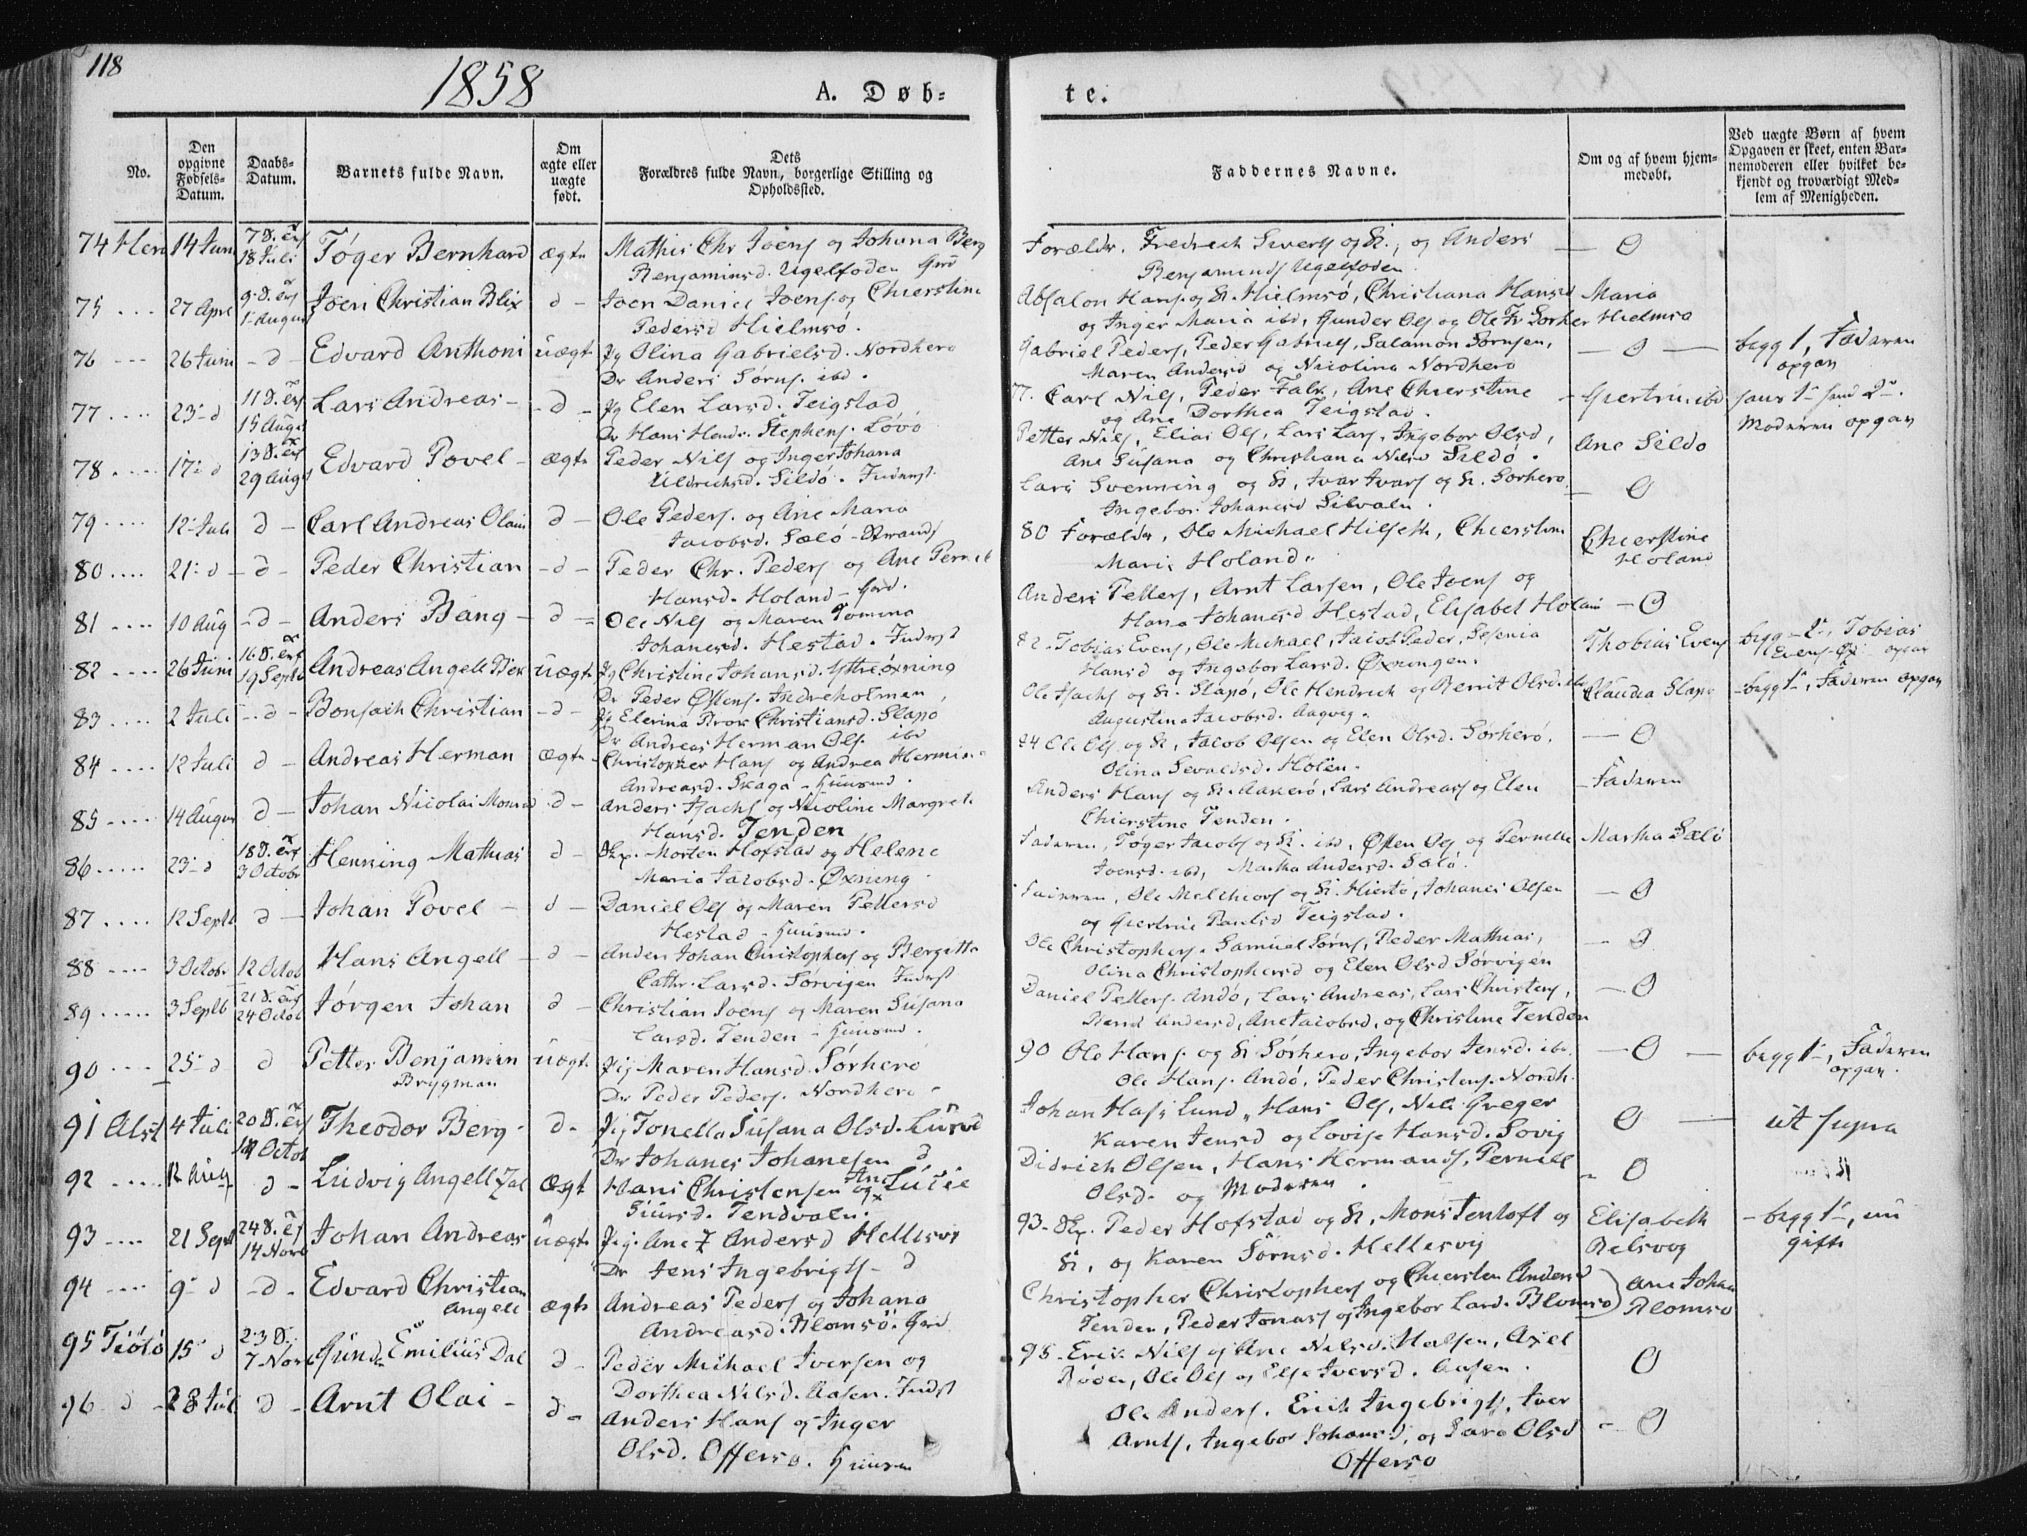 118
1858
A. Døb-
te.
No.
Den opgivne Fødsels-Datum.
Daabs-Datum.
Barnets fulde Navn.
Om ægte eller uægte født.
Dets Forældres fulde Navn, borgerlige Stilling og Opholdssted.
Faddernes Navne.
Om og af hvem hjem-medøbt.
Ved uægte Børn af hvem Opgaven er skeet, enten Bar-nemoderen eller hvilket be-kjendt og troværdigt Med-lem af Menigheden.
74 Herø 14 Juni 18 Juli Tøger Bernhard ægte Mathis Chr Joens og Johana Berg
Benjaminsd. Ugelfoden Grd
Forældr. Fredrich Sivers og K., og Anders — O
Benjamins Ugelfoden
75 .... 27 Apr 1 August Joen Christian Blix d – Joen Daniel Joens. og Chierstine
Pedersd Hielmsø.
Absalon Hans. og K. Hielmsø, Christiana Hansd Maria
og Inger Maria ibd, Gunder Ols og Ole Hielmsø
76 --- 26 Juni – d – Edvard Anthoni uægt Pg Olina Gabrielsd. Nordherø
Dr Anders Sørns. ibd.
Gabriel Peders, Peder Gabriels, Salamon Sørnsen, — O — begg 1, Faderen
Maren Andersd og Nicolina Nordherø opgav
77 .... 23 – d 15 Augs Lars Andreas – d – Pg Elen Larsd. Teigstad
Dr Hans Hendr. Stephens. Løvø
77. Carl Nils, Peder Falk, Ane Chierstine
og Ane Dorthea Teigstad.
Moderen opgav
78 .... 17 – d 29 Augs Edvard Povel – ægte Peder Nils og Inger Johana
Uldrichsd. Sildø. Inderst
Petter Nils, Elias Ols, Lars Lars, Ingebor Olsd, Ane Sildø
Ane Susana og Christiana Nilsd Sildø.
79 .... 12 Juli d – Carl Andreas Olaus d – Ole Peders. og Ane Maria
Jacobsd. Sælø – Strands
Lars Svenning og K, Ivar Ivars og K. Sørherø, – O
Ingebor Johanesd Silvalen.
80 .... 21 – d – d – Peder Christian – d – Peder Chr. Peders og Ane Pernele
Hansd. Holand – Grd.
80 Forældr, Ole Michael Hilseth, Chierstine Chierstine
Maria Holand. Holand
81 .... 10 Aug – d – Anders Bang – d – Ole Nils og Maren Tomina
Johanesd. Hestad. Inderst
Anders Petters, Arnt Larsen, Ole Joens og
Hana Johanesd Hestad, Elisabet Holan – O
82 .... 26 Juni 19 Septb Andreas Angell Dick uægte Pg Christine Johansd. Ythreøxning
Dr Peder Østens. Indreholmen
82. Tobias Evens, Ole Michael, Jacob Peder, Sesenia Thobias Evens begg – 2, Tobias
Hansd og Ingebor Larsd. Øxningen. Evens opgav
83 .... 2 Juli – d – Bonsach Christian – d – Pg Elerina Brox Christiansd. Slapø
Dr Andreas Herman Ols. ibd
Ole Isachs og K. Slapø, Ole Hendrich og Berrit Olsd. ibd Claudia Slapø – begg 1, Faderen opgav
Augustina Jacobsd. Aagvig.
84 .... 12 Juli d – Andreas Herman ægte – Christopher Hans og Andrea Hermina
Andreasd. Skaga – Huusmd.
84 Ole Ols og K, Jacob Olsen og Elen Olsd. Sørherø, — O
Olina Sevaldsd. Holen.
85 .... 14 August d – Johan Nicolai Monrad d – Anders Isachs og Nicoline Margrete
Hansd. Tenden
Anders Hans og K. Aakerø, Lars Andreas og Elen – Faderen
Chierstine Tenden.
86 ..... 23 – d 3 Octobr Henning Mathias d – Skp. Morten Hofstad og Helene
Maria Jacobsd. Øxning.
Faderen, Tøger Jacobs og K. ibd, Østen Ols og Pernelle Martha Sælø
Joensd. ibd, Martha Andersd. Sælø.
87 .... 12 Septb d – Johan Povel – d – Daniel Ols og Maren Pettersd
Hestad – Huusmd.
Faderen, Ole Melchiors og K. Hiertø, Johanes Olsen – O
og Giertrue Paulsd Teigstad.
88 .... 3 Octobr 12 Octob Hans Angell – d – Anders Johan Christophers og Bergitta
Cathr. Larsd. Sørvigen Inderst
Ole Christophers. Samuel Sørns, Peder Mathias, – O
Olina Christophersd og Elen Olsd Sørvigen
89 ..... 3 Septb 24 Octob Jørgen Johan d – Christian Joens og Maren Susana
Larsd. Tenden – Huusmd.
Daniel Petters. Andø, Lars Andreas, Lars Christens, – O
Berrit Andersd, Ane Jacobsd, og Christine Tenden
90 ... 25 – d d Petter Benjamin uægt. Pig Maren Hansd. Sørherø
Brygman
Dr Peder Peders. Nordherø –
90 Ole Hans. og K Sørherø, Ingebor Jensd. ibd. – O — begg 1, Faderen
Ole Hans. Andø, Peder Christens. Nordh. opgav.
91 Alst 4 Juli Octob Theodor Berg – d – Pig Tonella Susana Olsd. Luund
Dr Johanes Johanesen d
Johan Lund, Hans Ols, Nils Greger O — ut supra
Karen Jensd og Lovise Hansd. Sovig
92 ..... 12 Aug d – Ludvig Angell Zal ægt Hans Christensen og Ane Lucie
Siursd. Tendvalen.
Didrich Olsen, Hans Hermands, Pernill – O
Olsd. og Moderen.
93 .... 21 Sept 14 Novb Johan Andreas uægte Pig. Ane Z Andersd Hellesvig
Dr Jens Ingebrigts – d
93 – Skp. Peder Hofstad og K, Mons Tenloft og Elisabeth – begg 1, nu
K, og Karen Sørnsd. Hellesvig Belsvog gifte
94 .... 9 – d – d – Edvard Christian
Angell ægte Andreas Peders og Johana
Andreasd. Blomsø. Grd
Christopher Christophers og Chiersten Andersd Ane Johan
Tenden, Peder Jonas og Ingebor Larsd. Blomsø Blomsø
95 Tiøtø 15 – d 7 Novb Emilius Dal d – Peder Michael Iversen og
Dorthea Nilsd. Aasen. Indst
95 – Erik Nils og Ane Nilsd. Halsen, Axel O
Røden, Ole Ols og Else Iversd. Aasen.
96 – d – 28 Jul d – Arnt Olai – d – Anders Hans og Inger
Olsd. Offersø. Huusm
Ole Anders. Erich Ingebrigts, Iver – O
Arnts, Ingebor Johansd, og Sara Olsd
Offersø